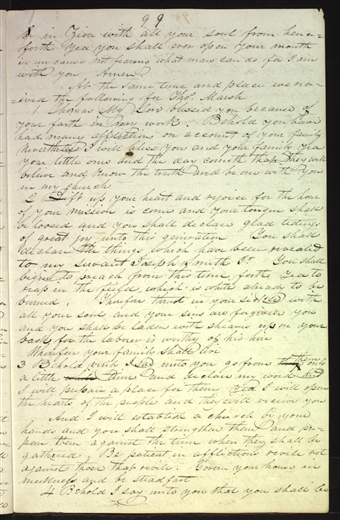 99
& in Zion with all your soul from hence
forth Yea you shall ever open your mouth
in my cause not fearing what man can do for I am
with you Amen
At the Same time and place we rece
ived the following for Thos. Marsh
1 Thomas My Son blessed you because of
your faith in my work. Behold you have
had many afflictions on account of your family
Nevertheless I will bless you and your family Yea
your little ones and the day cometh that they will
believe and know the truth and be one with you
in my church
2 Lift up your heart and rejoice for the hour
of your mission is come and your tongue shall
be loosed and you shall declare glad tidings
of great joy unto this generation You shall
declare the things which have been revealed
to my servant Joseph Smith Jr. You shall
begin to preach from this time forth Yea to
reap in the field which is white already to be
burned. Therefore thrust in your sickle with
all your soul and your sins are forgiven you
and you shall be laden with sheaves upon your
back for the laborer is worthy of his hire
Wherefore your family shall live
3 Behold verily I say unto you go from them only
a little time and declare my word and
I will prepare a place for them Yea I will open
the hearts of the people and they will receive you
And I will establish a church by your
hand and you shall strengthen them and pre
pare them against the time when they shall be
gathered. Be patient in afflictions revile not
against those that revile. Govern your house in
meekness and be steadfast
4 Behold I say unto you that you shall be